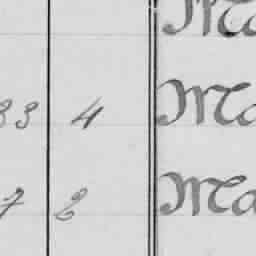 Ma
33 4 Ma
7 2 Ma